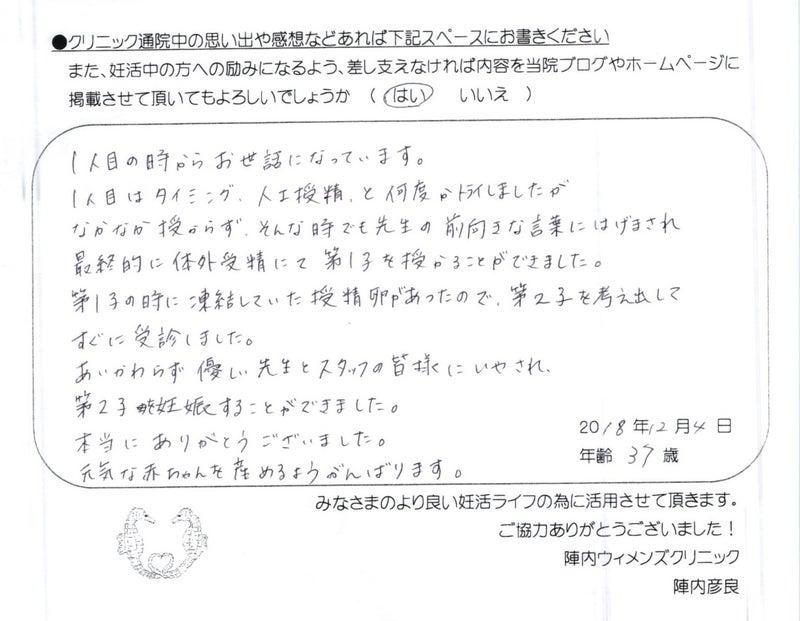 ●クリニック通院中の思い出や感想などあれば下記スペースにお書きください
また、妊活中の方への励みになるよう、差し支えなければ内容を当院ブログやホームページに
掲載させて頂いてもよろしいでしょうか （ はい　いいえ ）
1人目の時からお世話になっています。
1人目はタイミング、人工授精、と何度かトライしましたが
なかなか授からず、そんな時でも先生の前向きな言葉にはげまされ
最終的に体外受精にて第1子を授かることができました。
第1子の時に凍結していた授精卵があったので、第2子を考え出して
すぐに受診しました。
あいかわらず優しい先生とスタッフの皆様にいやされ、
第2子も妊娠することができました。
本当にありがとうございました。
元気な赤ちゃんを産めるようがんばります。
2018年12月4日
年齢 37歳
みなさまのより良い妊活ライフの為に活用させて頂きます。
ご協力ありがとうございました！
陣内ウィメンズクリニック
陣内彦良